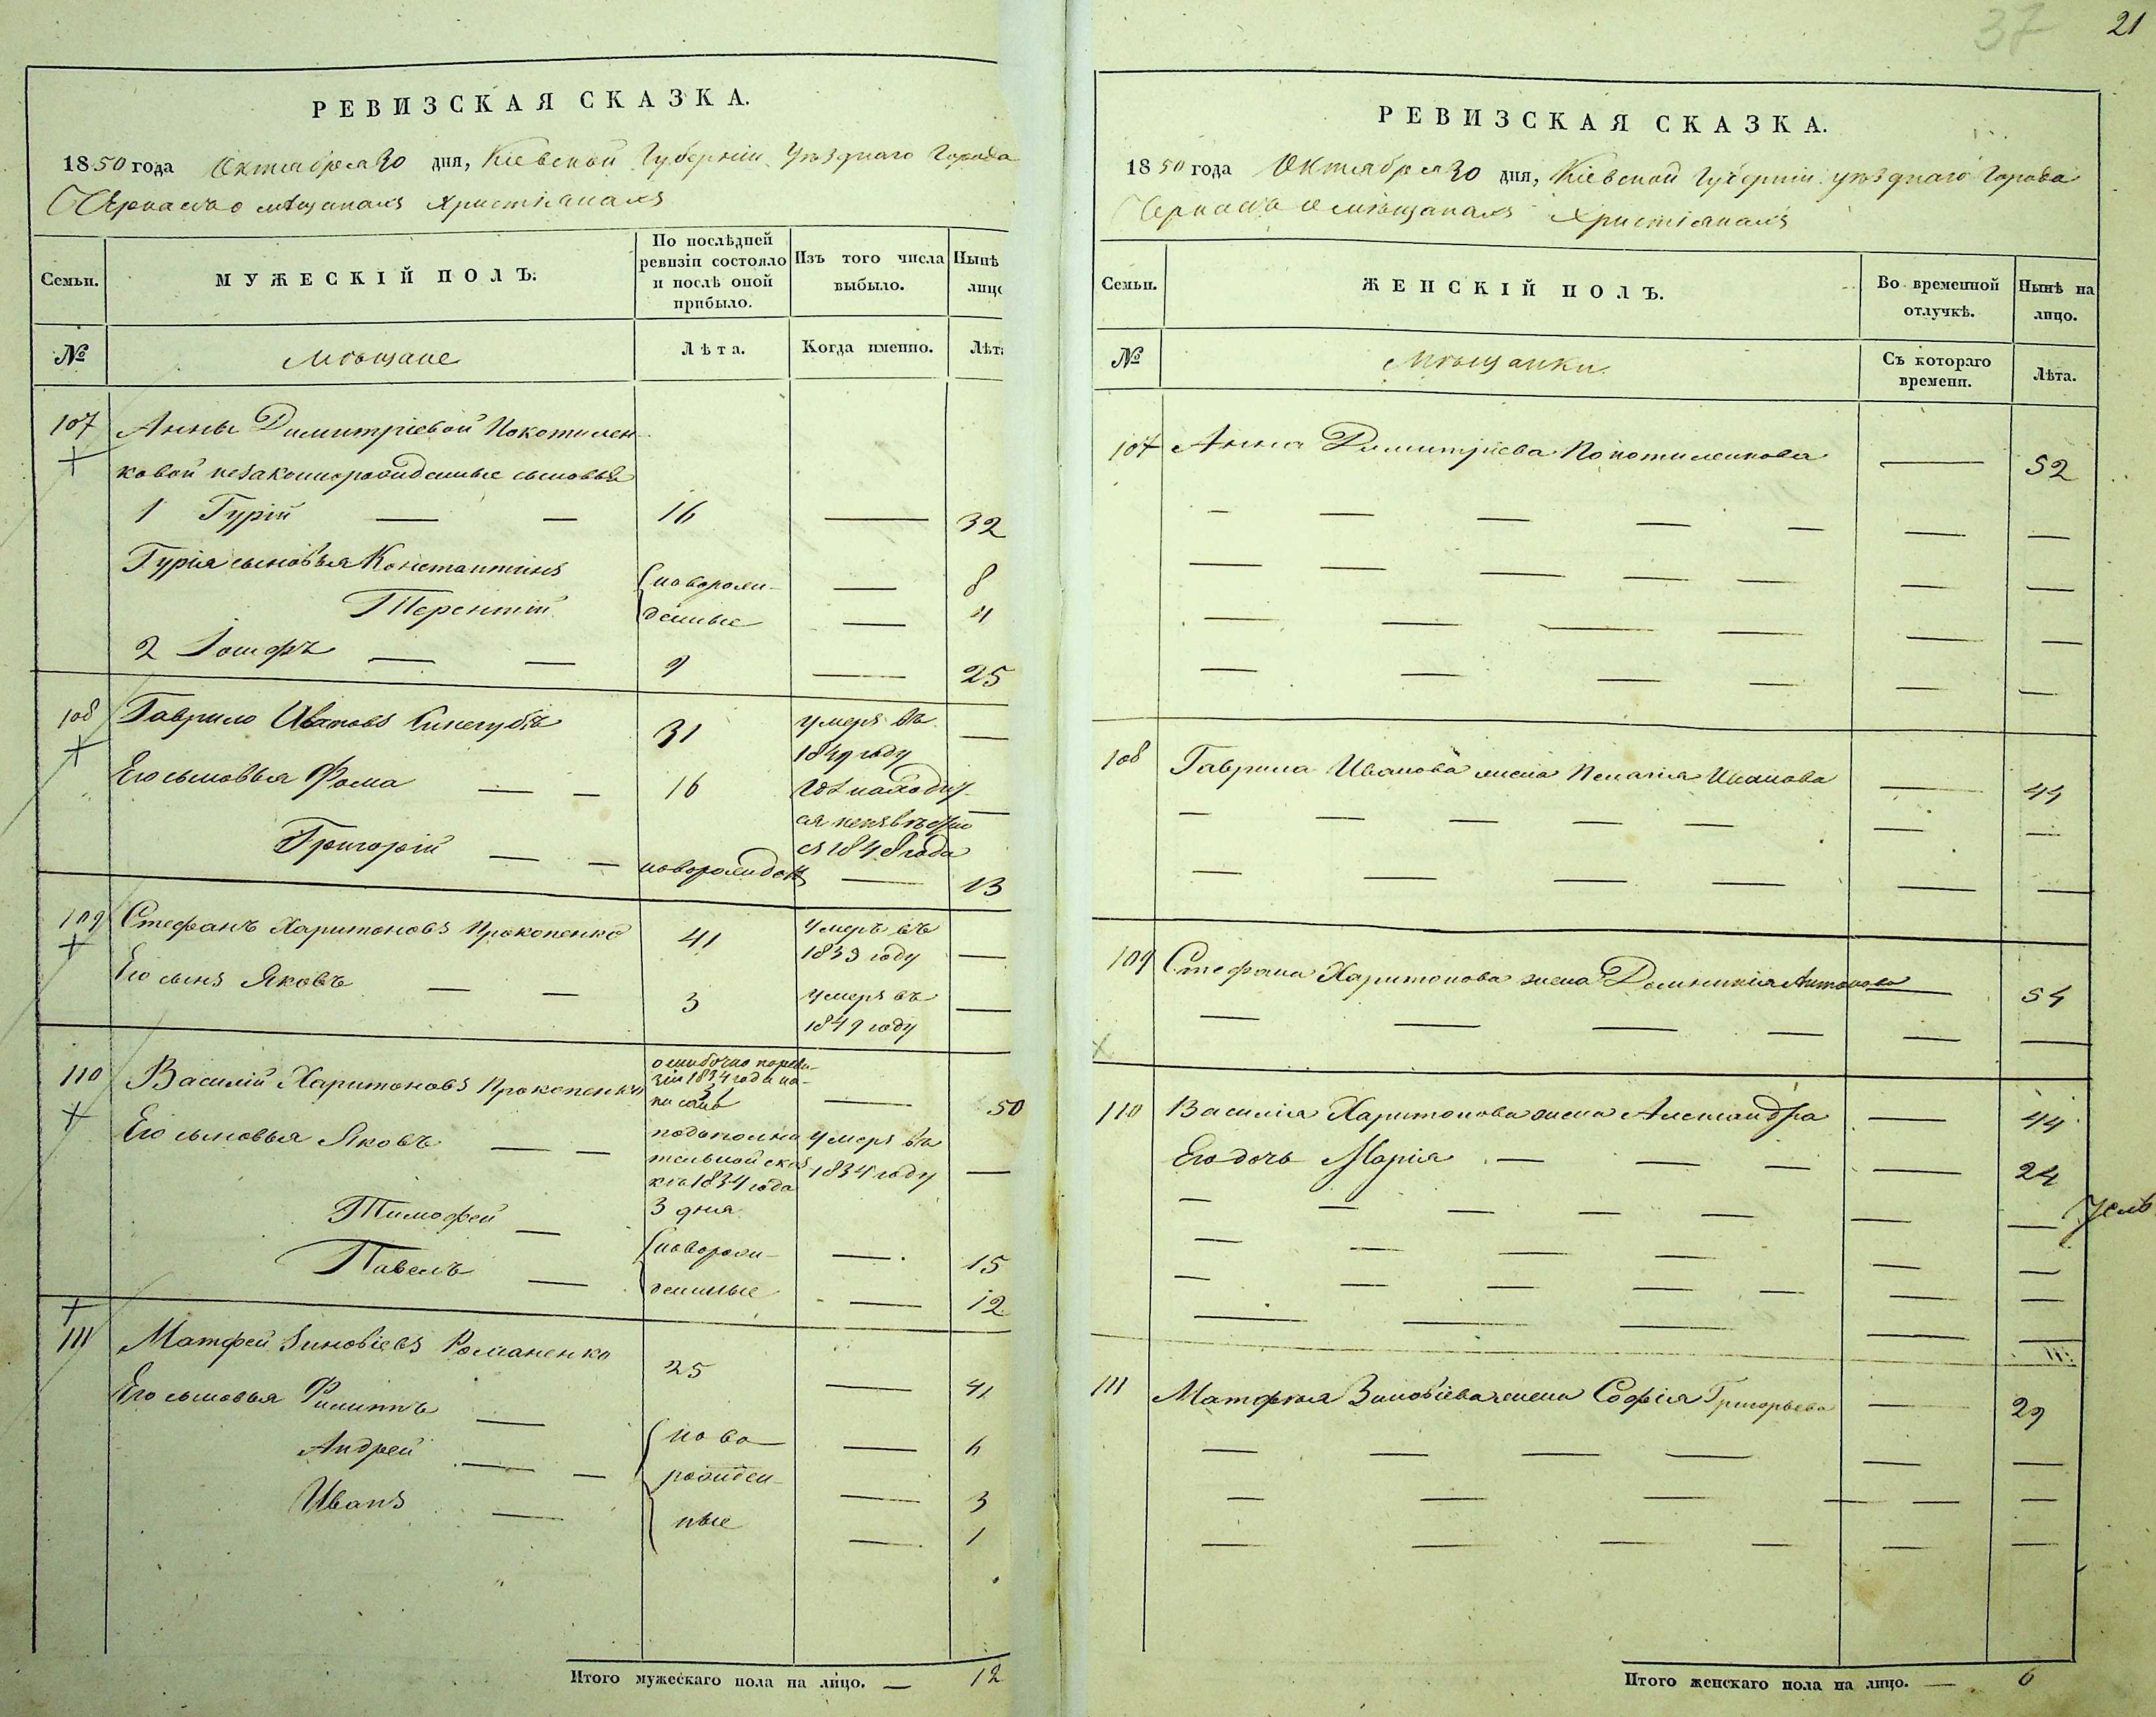 37
21
РЕВИЗСКАЯ СКАЗКА.
1850 года Октября 30 дня, Кіевской Губерніи Уѣзднаго Города
Черкасъ о мѣщанахъ Христіянахъ
Семьи.
МУЖЕСКІЙ ПОЛЪ.
По послѣдней ревизіи состояло и послѣ оной прибыло.
Изъ того числа выбыло.
Нынѣ лицо
№
Мѣщане
Лѣта.
Когда именно.
Лѣта
107 Анны Димитріевой Покотилен
ковой незаконнорожденные сыновья
1 Гурій — — 16 — 32
Гурія сыновья Константинъ {новорож- — 8
Терентій денные — 4
2 Іосифъ — — 9 — 25
108 Гаврило Ивановъ Синегубъ 31 умеръ въ —
1849 году
Его сыновья Фома — — 16 где находит-
ся неизвѣстно —
съ 1848 года
Григорій — — новорожденъ — 13
109 Стефанъ Харитоновъ Прокопенко 41 умеръ въ
1839 году —
Его сынъ Яковъ — — 3 умеръ въ
1849 году —
110 Василій Харитоновъ Прокопенко ошибочно пореви-
зіи 1834 года на-
писано 31 — 50
Его сыновья Яковъ — — подополни умеръ въ
тельной сказ 1834 году —
къ 1834 года
3 дня
Тимофей — {новорож- — 15
Павелъ — денные — 12
111 Матфей Зиновіевъ Романенко 25 — 41
Его сыновья Филиппъ — {ново — 6
Андрей — — рожден- — 3
Иванъ — ные — 1
Итого мужескаго пола на лицо. — 12
РЕВИЗСКАЯ СКАЗКА.
1850 года Октября 30 дня, Кіевской Губерніи уѣзднаго Города
Черкасъ о мѣщанахъ Христіянахъ
Семьи.
ЖЕНСКІЙ ПОЛЪ.
Во временной отлучкѣ.
Нынѣ на лицо.
№
Мѣщанки
Съ котораго времени.
Лѣта.
107 Анна Димитріева Покотиленкова — 52
108 Гаврила Иванова жена Пелагія Иванова — 44
109 Стефана Харитонова жена Домникія Антонова — 54
110 Василія Харитонова жена Александра — 44
Его дочь Марія — — — — 24
111 Матфея Зиновіева жена Софія Григорьева — 29
Итого женскаго пола на лицо. — 6